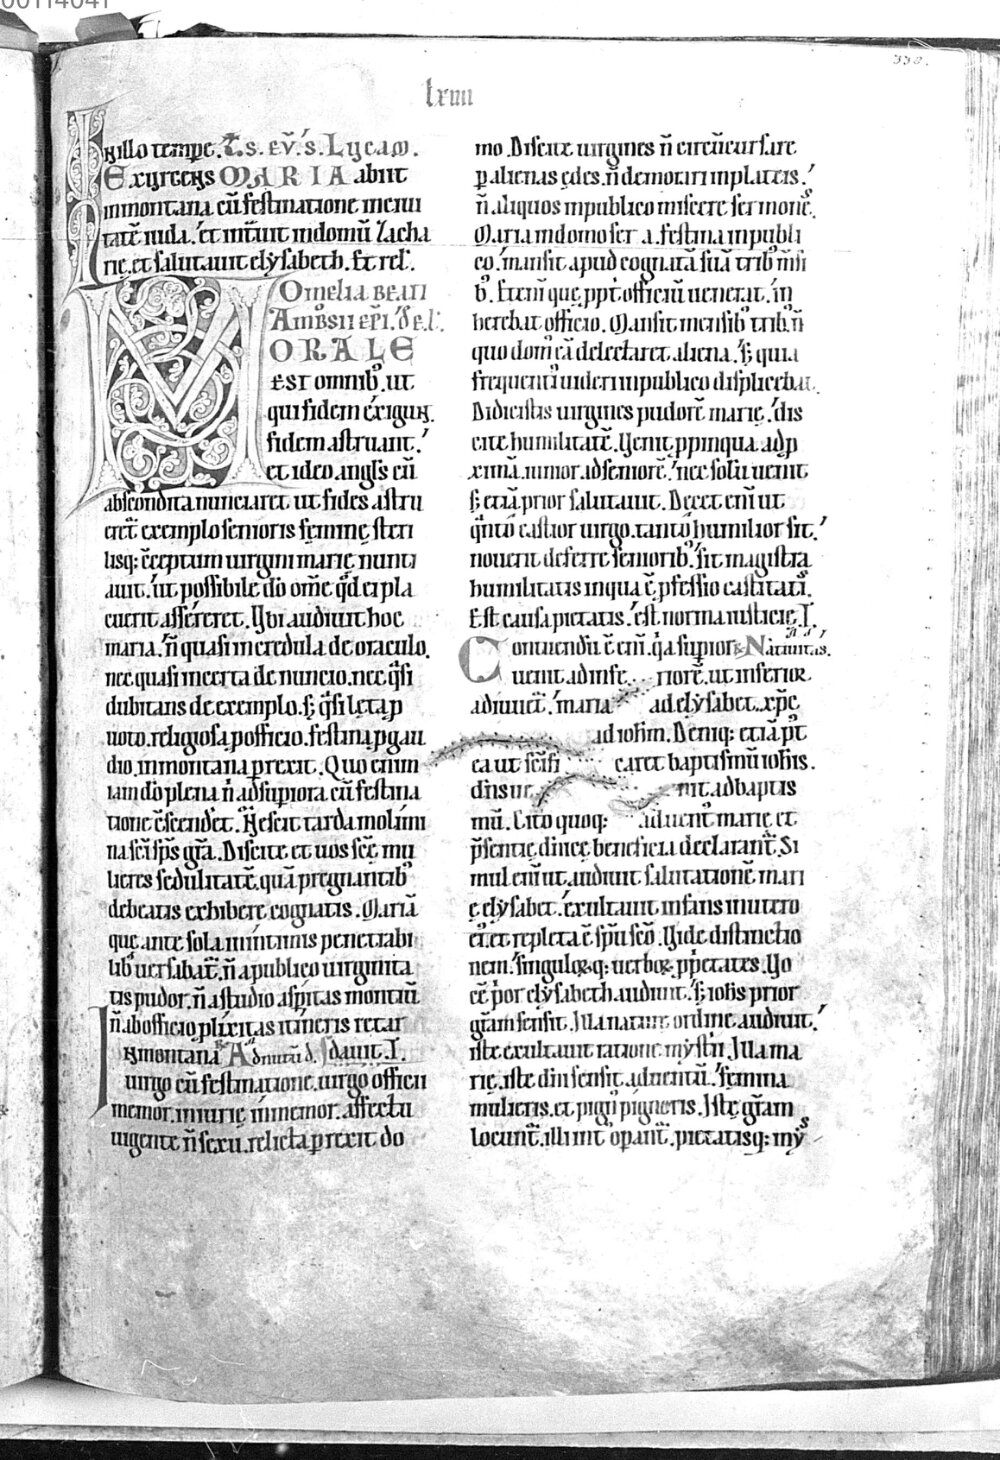 00114041
330.
lxiiii
In illo tempr̄e. S. eṽ. s. Lucam.
Exurgens MARIA abiit
in montana cũ festinatione in ciui
tatẽ iuda. et int̃uit in domũ Zacha
rie. et salutauit elysabeth. Et rel̃.
Omelia beati
Ambsii ep̃i. de l.
MORALE
est omnibȝ. ut
qui fidem exigunt.
fidem astruant.
et ideo angl̃s cũ
abscondita nunciaret ut fides astru
eret̃ exemplo senioris femine steri
lisq: cceptum uirgini marie nunti
auit. ut possibile do om̃e qd ei pla
cuerit assereret. Vbi audiuit hoc
maria. ñ quasi incredula de oraculo.
nec quasi incerta de nuncio. nec q̃si
dubitans de exemplo. s; q̃si leta p
uoto. religiosa p officio. festina p gau
dio. in montana prexit. Quo enim
iam do plena ñ ad supiora cũ festina
tione c̃scenderet. Nescit tarda molimi
na sc̃i sp̃s gr̃a. Discite et uos sc̃e mu
lieres sedulitatẽ. quã pregnantibȝ
debeatis exhibere cognatis. Mariã
que ante sola in intimis penetrabi
libȝ uersabat̃. ñ a publico uirginita
tis pudor. ñ a studio aspitas montiũ.
ñ ab officio plixitas itineris retar
In montana
uirgo cũ festinatione. uirgo officii
memor. iniurie inmemor. affectu
urgente ñ sexu. relicta prexit do
mo. Discite uirgines ñ circũcursare
p alienas edes. ñ demorari in plateis.
ñ aliquos in publico miscere sermonẽs.
Maria in domo ser a. festina in publi
co. mansit apud cognatã suã tribȝ m̃si
bȝ. Etenim que ppt̃ officiũ uenerat. in
herebat officio. Mansit mensibȝ tribȝ. ñ
quo domȝ eã delectaret aliena. s; quia
frequentiȝ uideri in publico displicebat.
Didicistis uirgines pudorẽ marie. dis
cite humilitatẽ. Venit ppinqua ad p
ximã. iunior ad seniorẽ. nec solũ uenit
s; etiã prior salutauit. Decet enĩ ut
q̃nto castior uirgo. tanto humilior sit.
nouerit deferre seniorib. sit magistra
humilitatis in qua ẽ pfessio castitatis.
Est causa pietatis. est norma iusticie.
Contuendũ ẽ enĩ. q̃a supior Natiuitas.
uenit ad infe riorẽ. ut inferior
adiuuet̃. maria ad elysabet. xp̃c
ad ioh̃m. Deniq: etiã pt̃
ea ut sc̃ifi caret baptismũ ioh̃is.
dñs ue nit ad baptis
mũ. Cito quoq: aduentȝ marie et
p̃sentie diuine beneficia declarant̃. Si
mul enĩ ut audiuit salutationẽ mari
e elysabet. exultauit infans in utero
eiȝ. et repleta ẽ spũ scõ. Vide distinctio
nem. singuloꝝq: uerboꝝ. pp̃etates. Vo
cẽ p̃or elysabeth audiuit. s; ioh̃is prior
gr̃am sensit. Illa nature ordine audiuit.
iste exultauit ratione mysterii. Illa ma
rie. iste dñi sensit aduentũ. femina
mulieris. et pignȝ pigneris. Iste gr̃am
locunt̃. illi intȝ opant̃. pietatisq: mys